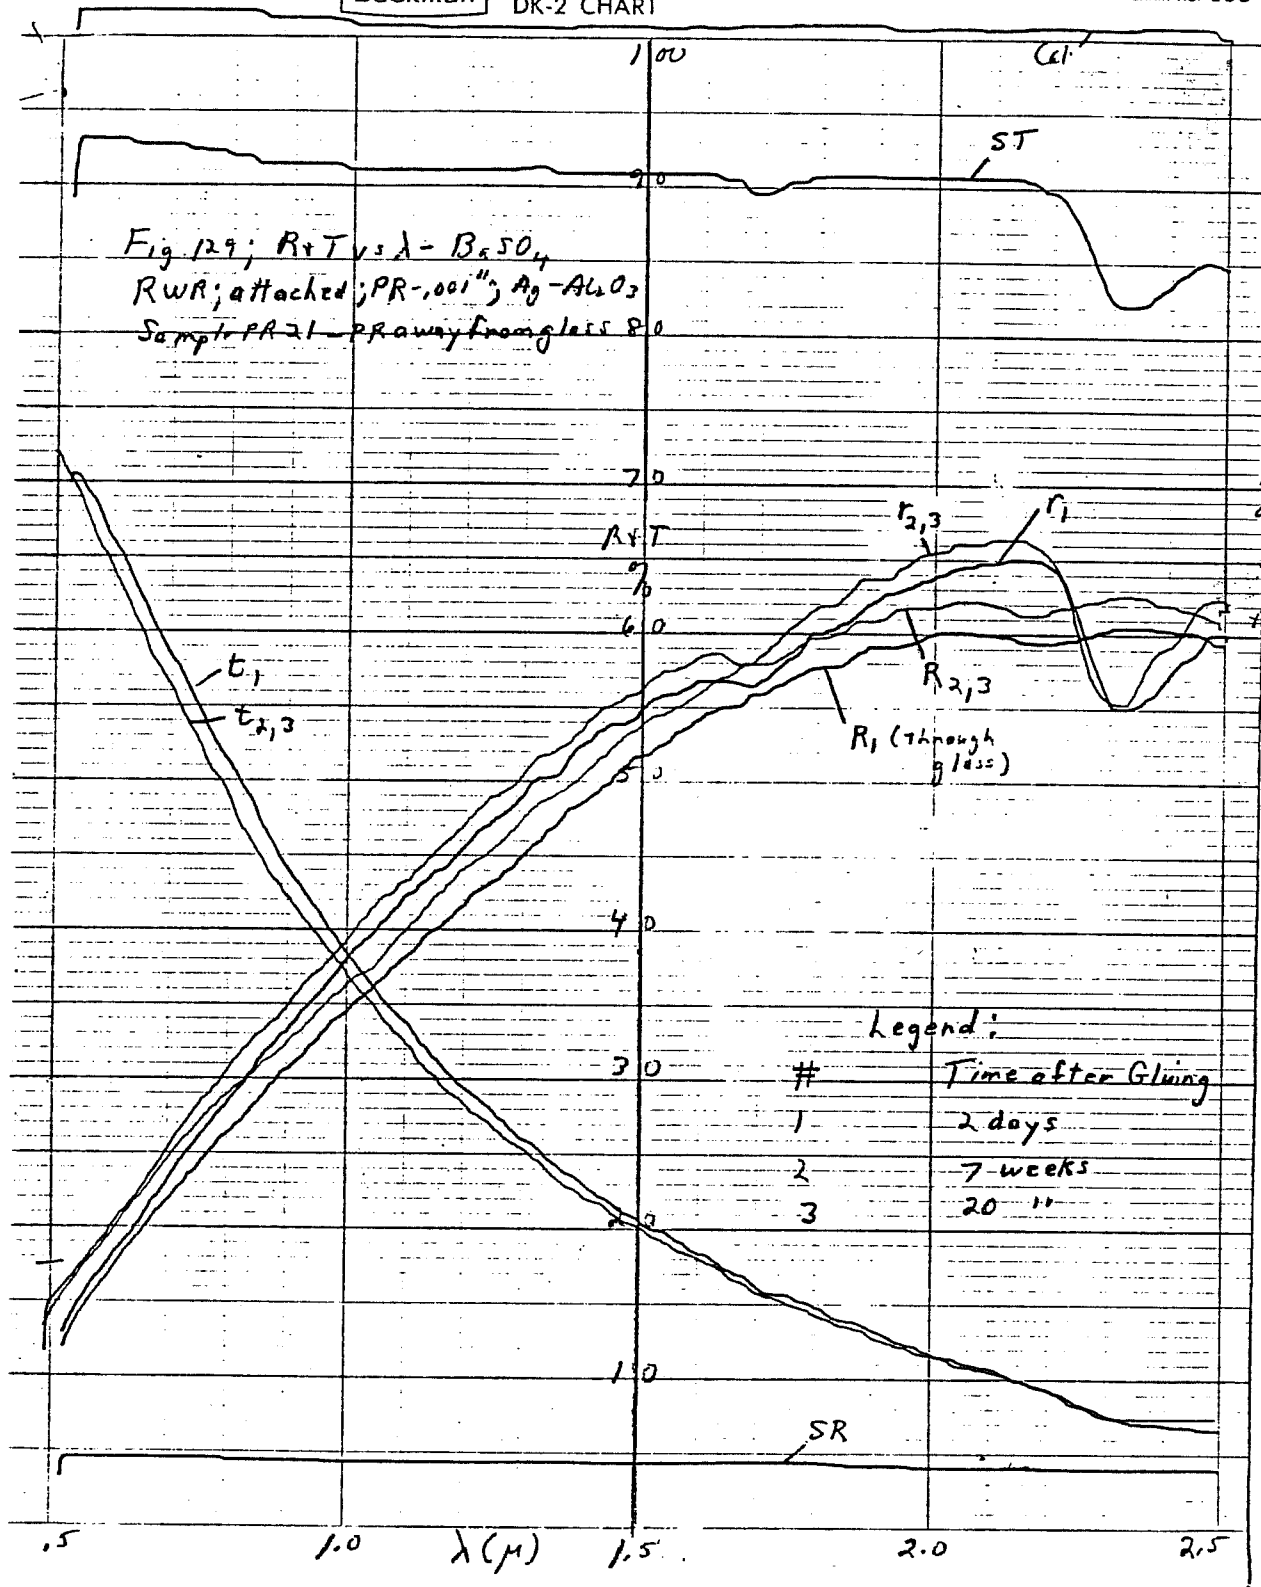 DK-2 CHART
1 00
Cal.
ST
90
Fig 129; R+T vs λ - BaSO4
RWR; attached; PR-.001"; Ag-Al2O3
Sample PR21 - PR away from glass
80
70
R+T
%
r2,3
r1
60
t1
t2,3
R2,3
R1 (Through
glass)
50
40
Legend:
30
# Time after Gluing
1 2 days
2 7 weeks
3 20 "
20
10
SR
.5 1.0 λ(μ) 1.5 2.0 2.5